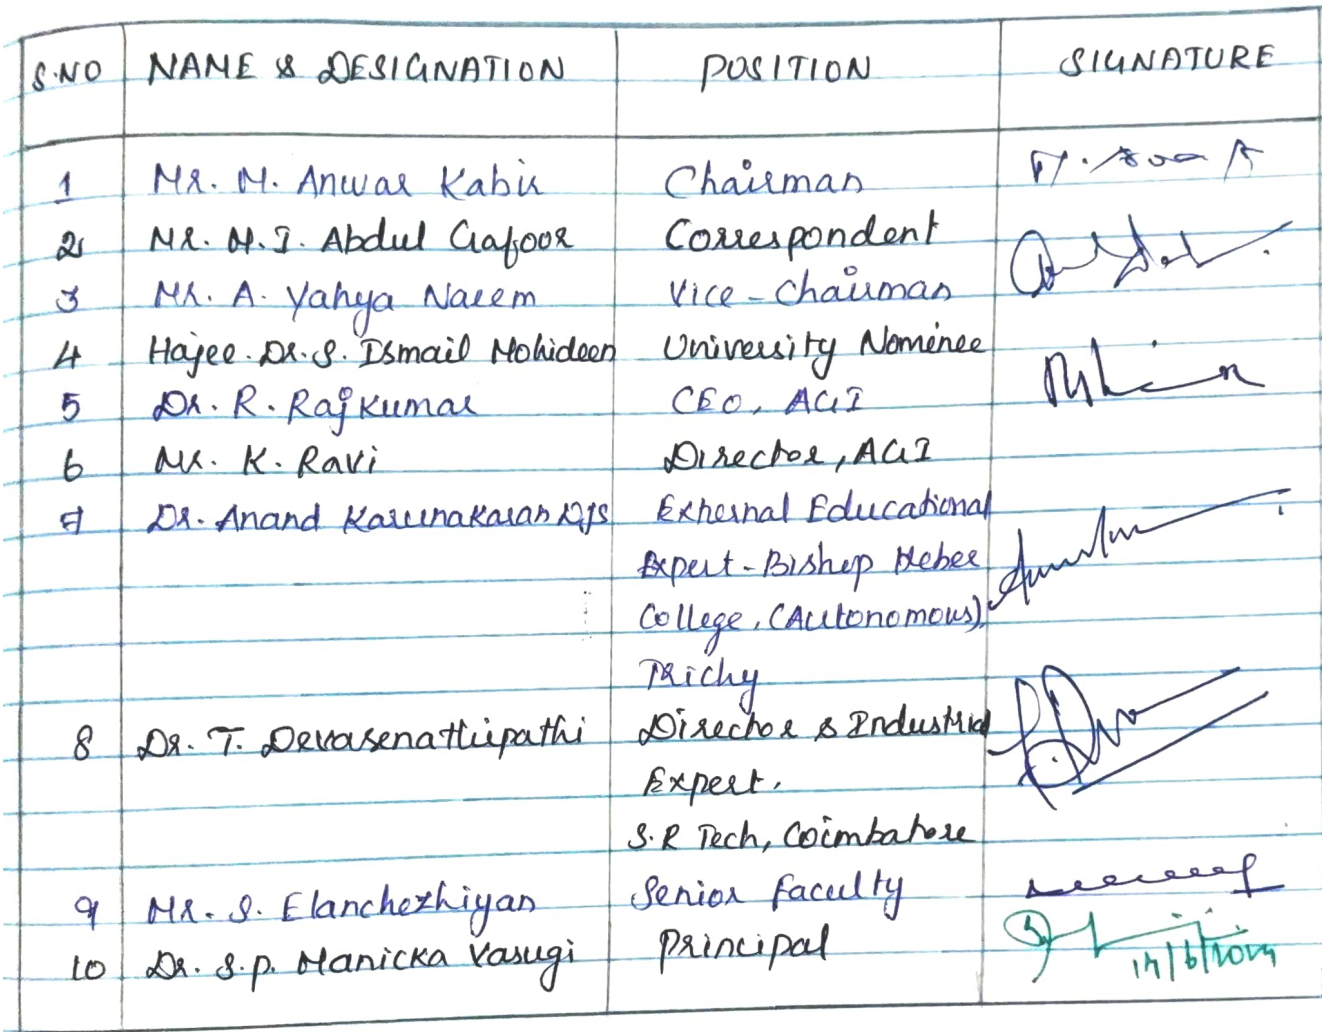 S.NO NAME & DESIGNATION POSITION SIGNATURE
1 Mr. M. Anwar Kabir Chairman
2 Mr. M.J. Abdul Gafoor Correspondent
3 Mr. A. Yahya Naeem Vice-Chairman
4 Hajee. Dr. S. Ismail Mohideen University Nominee
5 Dr. R. Rajkumar CEO, AGI
6 Mr. K. Ravi Director, AGI
7 Dr. Anand Karunakaran DJS External Educational
Expert - Bishop Heber
College, (Autonomous),
Trichy
8 Dr. T. Devasenathipathi Director & Industrial
Expert,
S.R Tech, Coimbatore
9 Mr. S. Elanchezhiyan Senior Faculty
10 Dr. S.P. Manicka Vasugi Principal